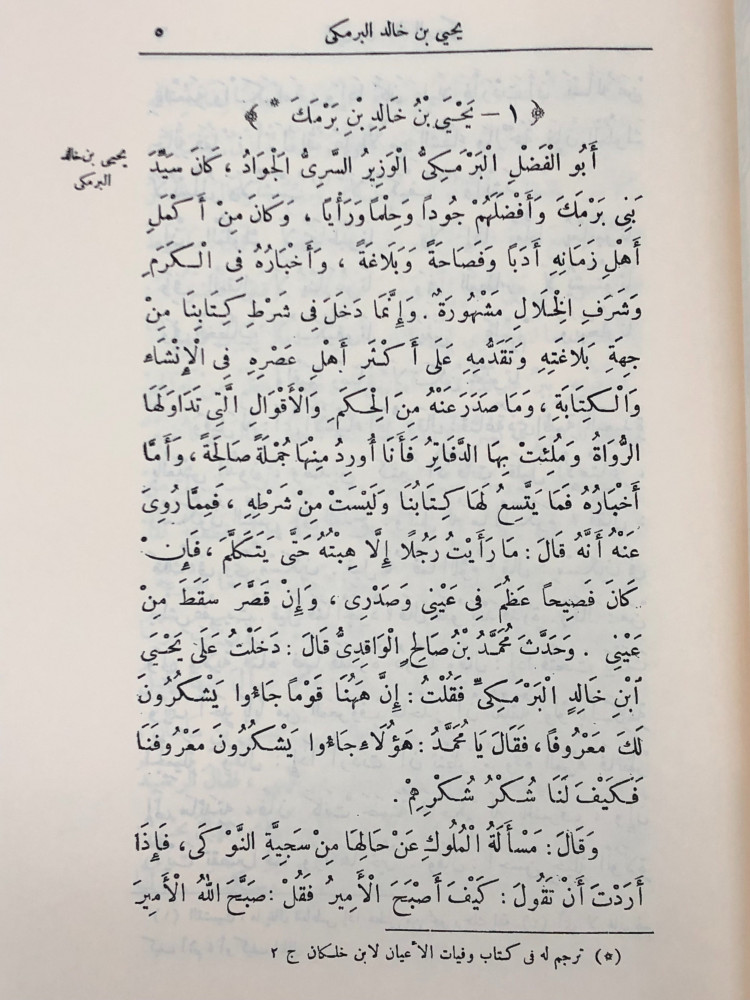 يحيي بن خالد البرمكى ٥
﴿ ١ – يَحْيَى بْنُ خَالِدِ بْنِ بَرْمَكَ * ﴾
يحيى بن خالد
البرمكى
أَبُو الْفَضْلِ الْبَرْمَكِىُّ الْوَزِيرُ السَّرِىُّ الْجَوَادُ ، كَانَ سَيِّدَ
بَنِى بَرْمَكَ وَأَفْضَلَهُمْ جُوداً وَحِلْماً وَرَأْيًا ، وَكَانَ مِنْ أَكْمَلِ
أَهْلِ زَمَانِهِ أَدَبًا وَفَصَاحَةً وَبَلَاغَةً ، وَأَخْبَارُهُ فِى الْكَرَمِ
وَشَرَفِ الْخِلَالِ مَشْهُورَةٌ . وَإِنَّمَا دَخَلَ فِى شَرْطِ كِتَابِنَا مِنْ
جِهَةِ بَلَاغَتِهِ وَتَقَدُّمِهِ عَلَى أَكْثَرِ أَهْلِ عَصْرِهِ فِى الْإِنْشَاءِ
وَالْكِتَابَةِ ، وَمَا صَدَرَ عَنْهُ مِنَ الْحِكَمِ وَالْأَقْوَالِ الَّتِى تَدَاوَلَهَا
الرُّوَاةُ وَمُلِئَتْ بِهَا الدَّفَاتِرُ فَأَنَا أُورِدُ مِنْهَا جُمْلَةً صَالِحَةً ، وَأَمَّا
أَخْبَارُهُ فَمَا يَتَّسِعُ لَهَا كِتَابُنَا وَلَيْسَتْ مِنْ شَرْطِهِ ، فَمِمَّا رُوِىَ
عَنْهُ أَنَّهُ قَالَ : مَا رَأَيْتُ رَجُلًا إِلَّا هِبْتُهُ حَتَّى يَتَكَلَّمَ ، فَإِنْ
كَانَ فَصِيحاً عَظُمَ فِى عَيْنِى وَصَدْرِى ، وَإِنْ قَصَّرَ سَقَطَ مِنْ
عَيْنِى . وَحَدَّثَ مُحَمَّدُ بْنُ صَالِحٍ الْوَاقِدِىُّ قَالَ : دَخَلْتُ عَلَى يَحْيَى
ابْنِ خَالِدٍ الْبَرْمَكِىِّ فَقُلْتُ : إِنَّ هَهُنَا قَوْماً جَاءُوا يَشْكُرُونَ
لَكَ مَعْرُوفًا ، فَقَالَ يَا مُحَمَّدُ : هَؤُلَاءِ جَاءُوا يَشْكُرُونَ مَعْرُوفَنَا
فَكَيْفَ لَنَا شُكْرُ شُكْرِهِمْ .
وَقَالَ : مَسْأَلَةُ الْمُلُوكِ عَنْ حَالِهَا مِنْ سَجِيَّةِ النَّوْكَى ، فَإِذَا
أَرَدْتَ أَنْ تَقُولَ : كَيْفَ أَصْبَحَ الْأَمِيرُ فَقُلْ : صَبَّحَ اللّٰهُ الْأَمِيرَ
(*) ترجم له فى كتاب وفيات الأعيان لابن خلكان ج ٢